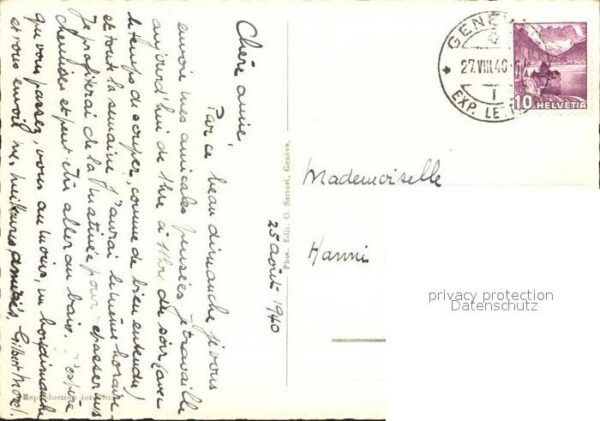 Chère amie,
Par ce beau dimanche, je vous
envoie mes amicales pensées, je travaille
aujourd'hui de 1hre à 11hr du soir (avec
le temps de souper, comme de bien entendu)
et tout la semaine j'aurai le même horaire.
Je profiterai de la matinée pour repasser mes
chemises et peut être aller au bain. J'espère
que vous passez, vous au moins, un bon dimanche
et vous envoie mes meilleures amitiés, Gilbert
25 août 1940
Phot. Edit. O. Sartori, Genève.
Reproduction interdite
GENÈVE
27.VIII.40
1
EXP. LET
10 HELVETIA
Mademoiselle
Hanni
privacy protection
Datenschutz